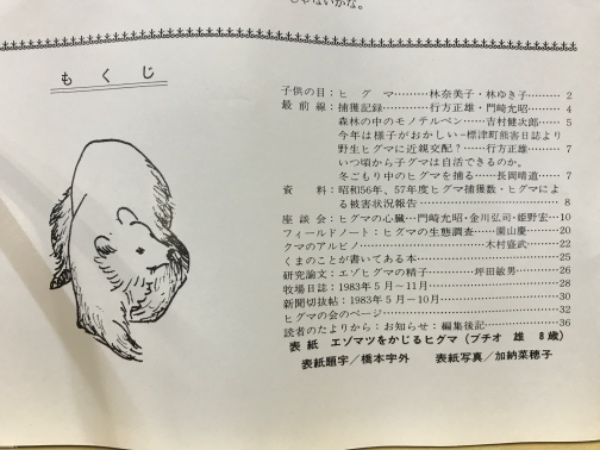 じゃないかな。
もくじ
子供の目：ヒグマ………林奈美子・林ゆき子………2
最前線：捕獲記録…………行方正雄・門崎允昭………4
森林の中のモノテルペン……吉村健次郎……5
今年は様子がおかしい－標津町熊害日誌より
野生ヒグマに近親交配？……行方正雄………7
いつ頃から子グマは自活できるのか。
冬ごもり中のヒグマを捕る……長岡晴道……7
資料：昭和56年、57年度ヒグマ捕獲数・ヒグマによ
る被害状況報告………………………………8
座談会：ヒグマの心臓…門崎允昭・金川弘司・姫野宏…10
フィールドノート：ヒグマの生態調査……園山慶………20
クマのアルビノ………………………木村盛武………22
くまのことが書いてある本…………………………………25
研究論文：エゾヒグマの精子…………坪田敏男………26
牧場日誌：1983年5月～11月……………………………28
新聞切抜帖：1983年5月－10月…………………………30
ヒグマの会のページ…………………………………………32
読者のたよりから：お知らせ：編集後記…………………36
表紙　エゾマツをかじるヒグマ（ブチオ　雄　8歳）
表紙題字／橋本宇外　表紙写真／加納菜穂子